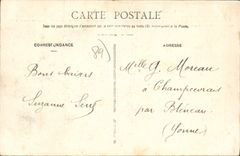 CARTE POSTALE
CORRESPONDANCE
ADRESSE
89
Bons baisers
Suzanne
Melle G. Moreau
à Champcevrais
par Bléneau
(Yonne)